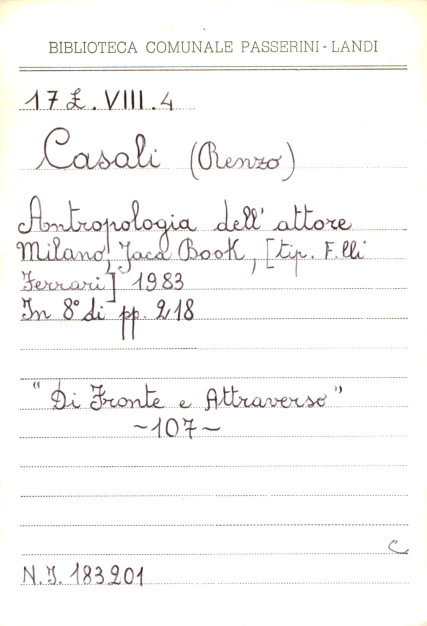 BIBLIOTECA COMUNALE PASSERINI-LANDI
17 Z. VIII. 4
Casali (Renzo)
Antropologia dell'attore
Milano, Jaca Book, [tip. F.lli
Ferrari] 1983
In 8° di pp. 218
"Di Fronte e Attraverso"
~107~
C
N.I. 183201